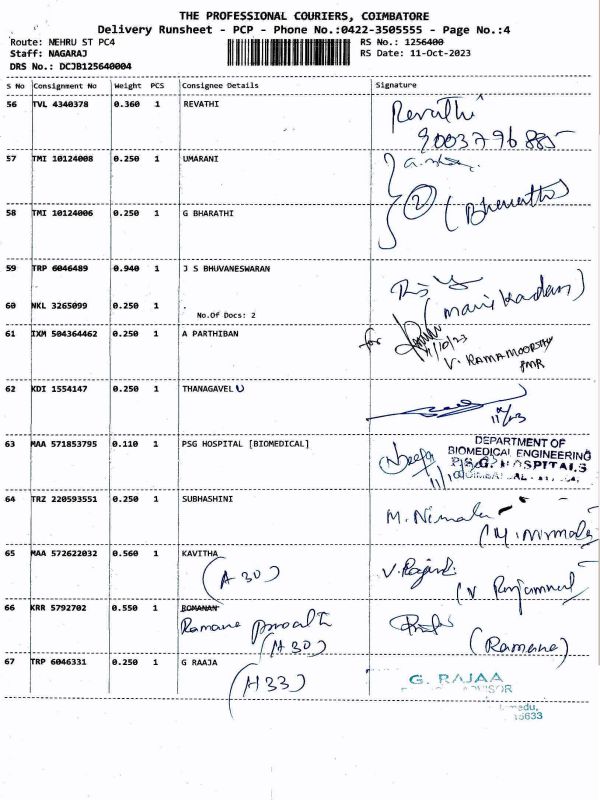 THE PROFESSIONAL COURIERS, COIMBATORE
Delivery Runsheet - PCP - Phone No.:0422-3505555 - Page No.:4
Route: NEHRU ST PC4 RS No.: 1256400
Staff: NAGARAJ RS Date: 11-Oct-2023
DRS No.: DCJB125640004
S No Consignment No Weight PCS Consignee Details Signature
56 TVL 4340378 0.360 1 REVATHI Revathi
9003796885
57 TMI 10124008 0.250 1 UMARANI
58 TMI 10124006 0.250 1 G BHARATHI 2 (Bharathi)
59 TRP 6046489 0.940 1 J S BHUVANESWARAN
60 NKL 3265099 0.250 1 (Manikandan)
No.Of Docs: 2
61 IXM 504364462 0.250 1 A PARTHIBAN for
11/10/23
V. RAMAMOORTHY
62 KDI 1554147 0.250 1 THANAGAVEL U
63 MAA 571853795 0.110 1 PSG HOSPITAL [BIOMEDICAL] DEPARTMENT OF
BIOMEDICAL ENGINEERING
P.S.G. HOSPITALS
64 TRZ 220593551 0.250 1 SUBHASHINI M. Nirmala
(M. Nirmala
65 MAA 572622032 0.560 1 KAVITHA
(A 30)
66 KRR 5792702 0.550 1 ROMANAN
Ramana
(A 30) (Ramana)
67 TRP 6046331 0.250 1 G RAAJA G. RAJAA
(H33)